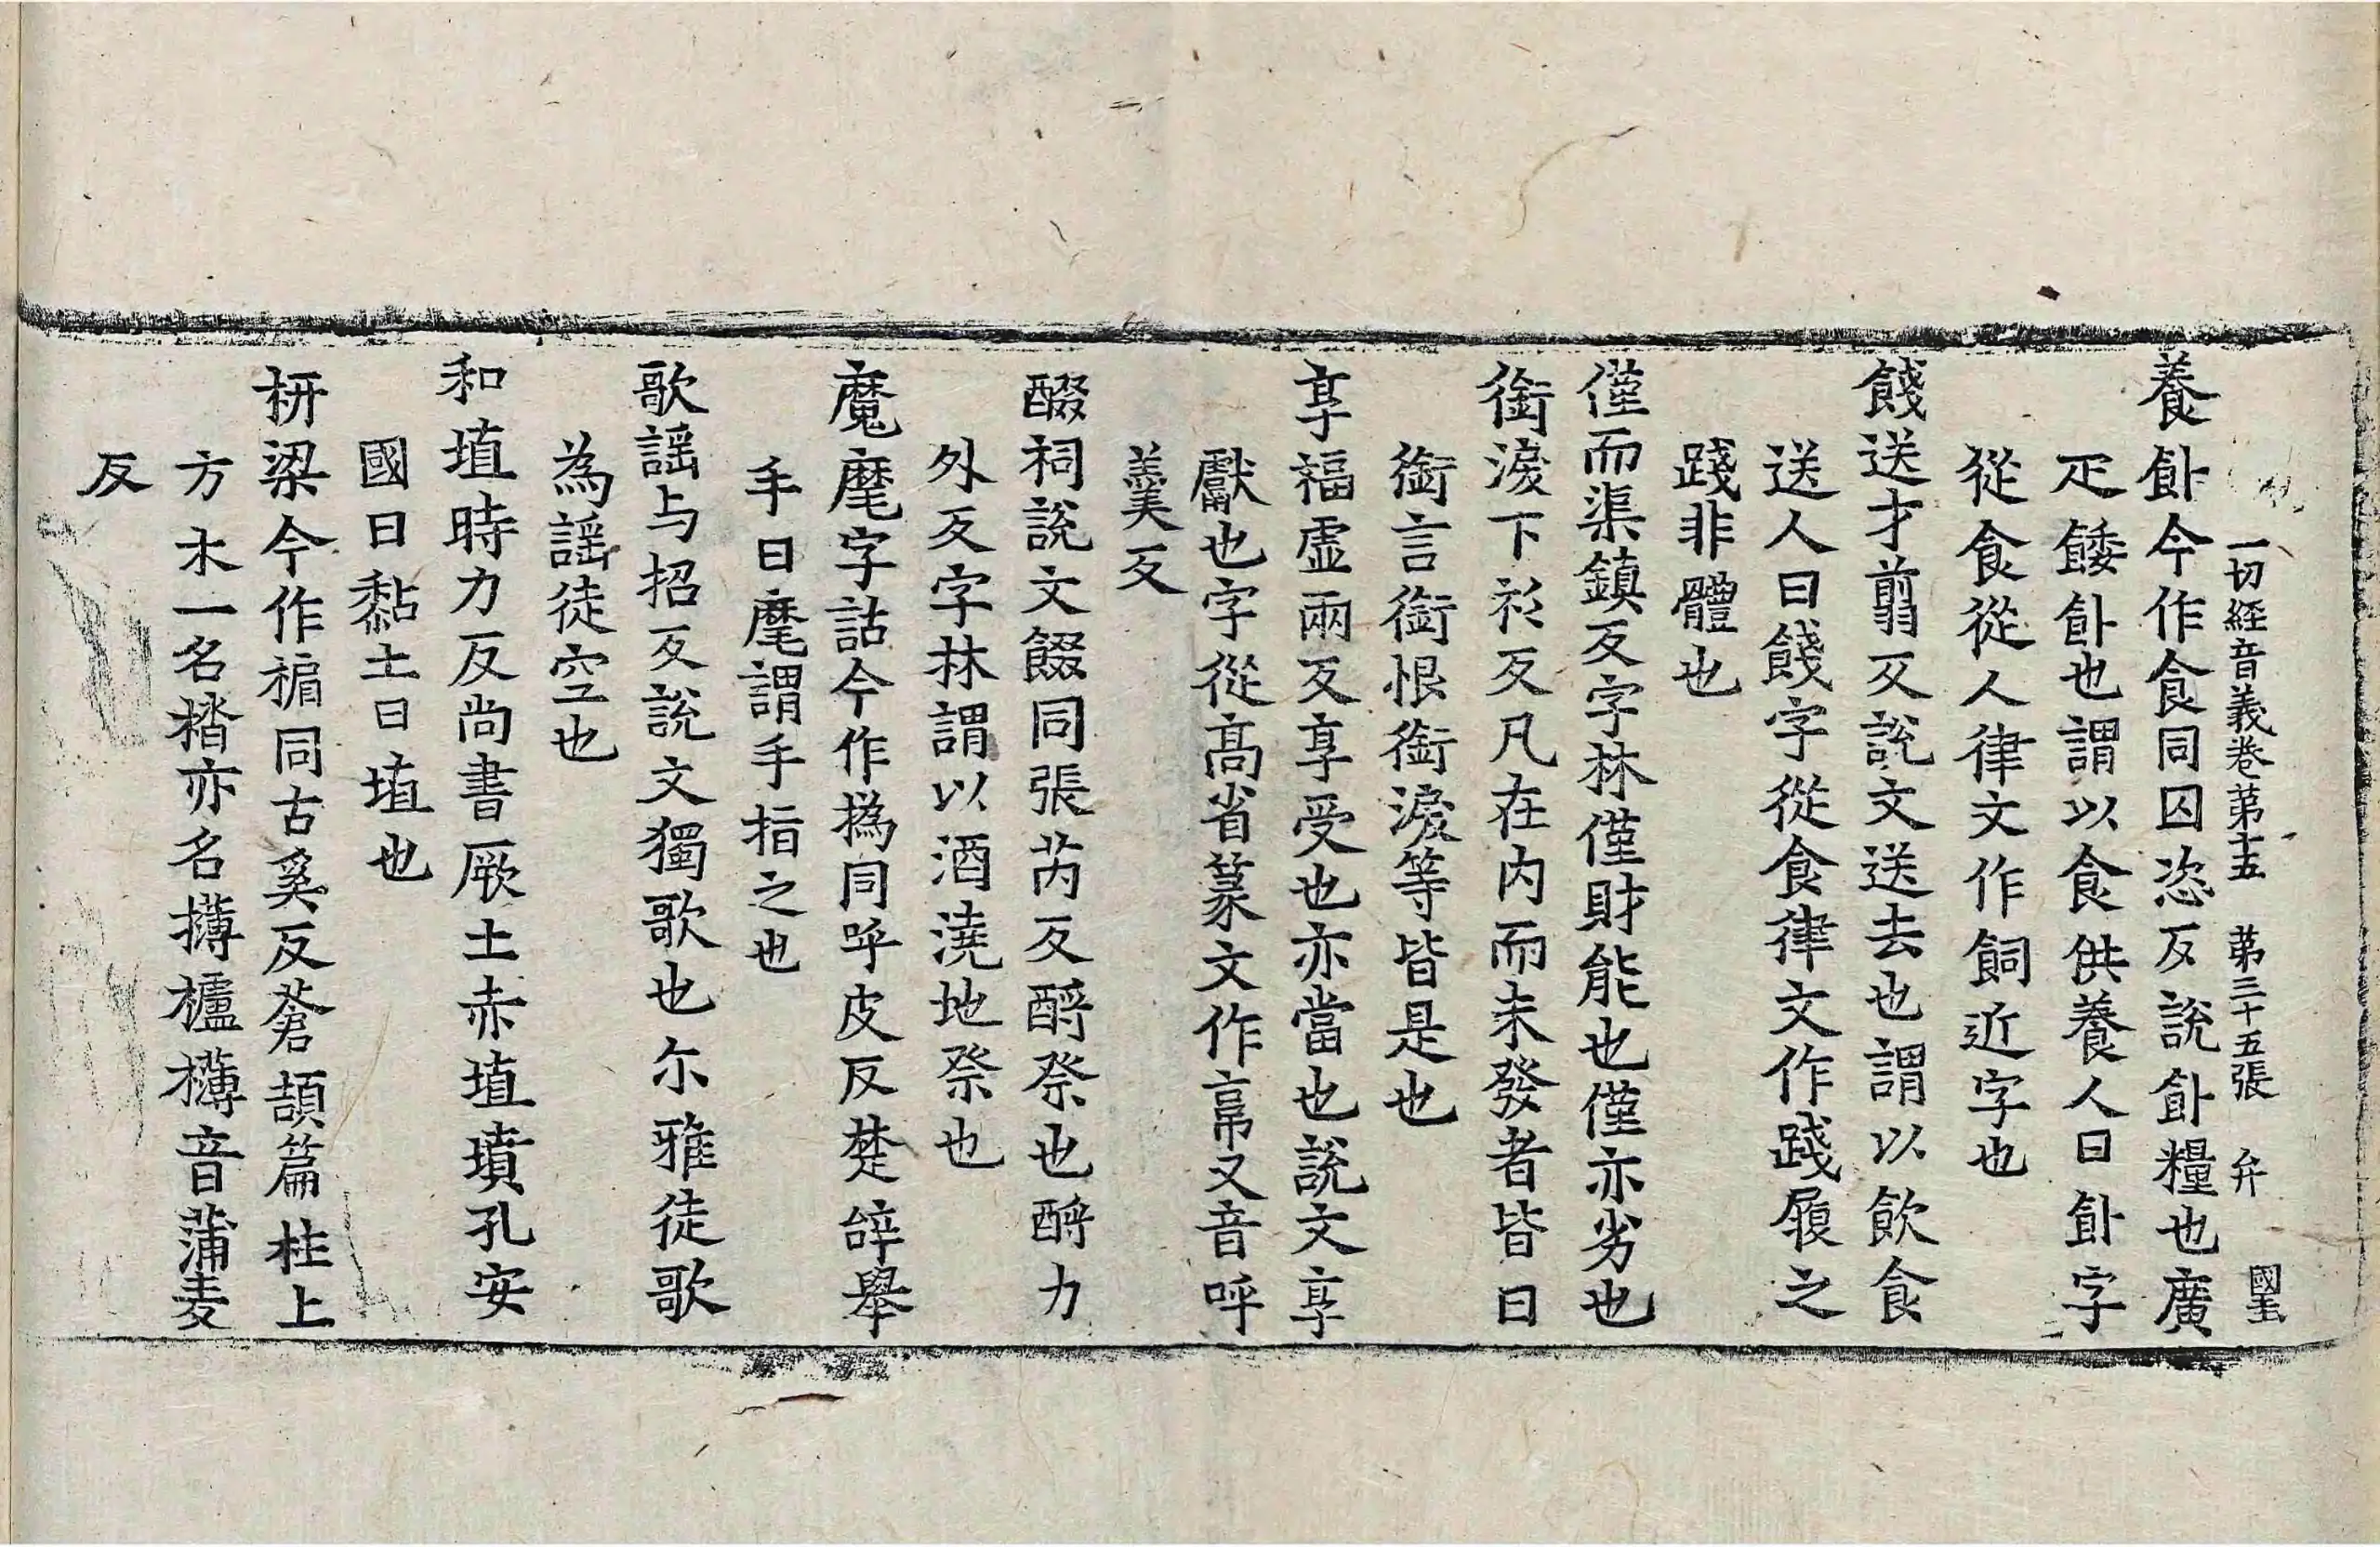 一切經音義卷第十五　第三十五張　弁　國玉
養飤今作食同囚恣反說飤糧也廣
疋餧飤也謂以食供養人曰飤字
從食從人律文作飼近字也
餞送才翦反說文送去也謂以飲食
送人曰餞字從食律文作踐履之
踐非體也
僅而渠鎮反字林僅財能也僅亦劣也
銜淚下衫反凡在內而未發者皆曰
銜言銜恨銜淚等皆是也
享福虛兩反享受也亦當也說文享
獻也字從高省篆文作亯又音呼
羹反
醊祠說文餟同張芮反酹祭也酹力
外反字林謂以酒澆地祭也
魔麾字詁今作撝同呼皮反楚辭舉
手曰麾謂手指之也
歌謡与招反說文獨歌也尒雅徒歌
為謡徒空也
和埴時力反尚書厥土赤埴墳孔安
國曰黏土曰埴也
枅梁今作㮇同古奚反蒼頡篇柱上
方木一名楷亦名欂櫨欂音蒲麦
反